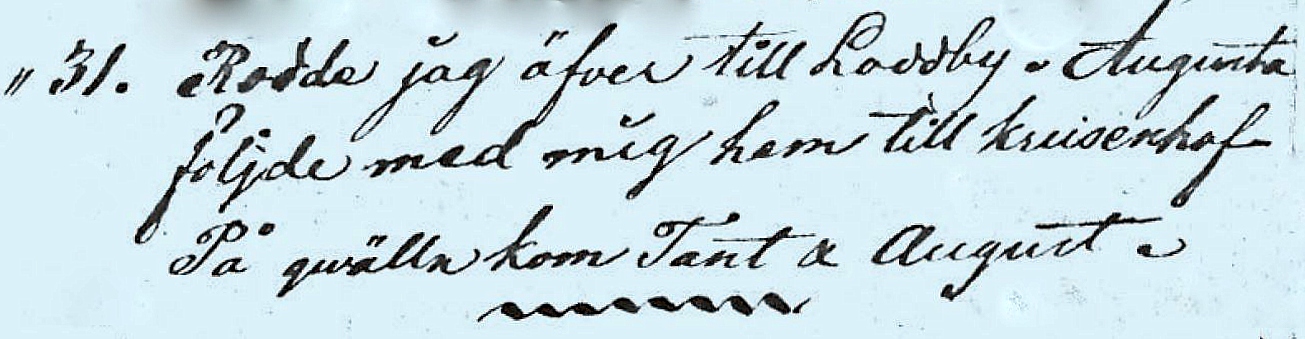 " 31. Rodde jag öfver till Loddby. Augusta
följde med mig hem till kruisenhof
På qwälln kom Tant & August.